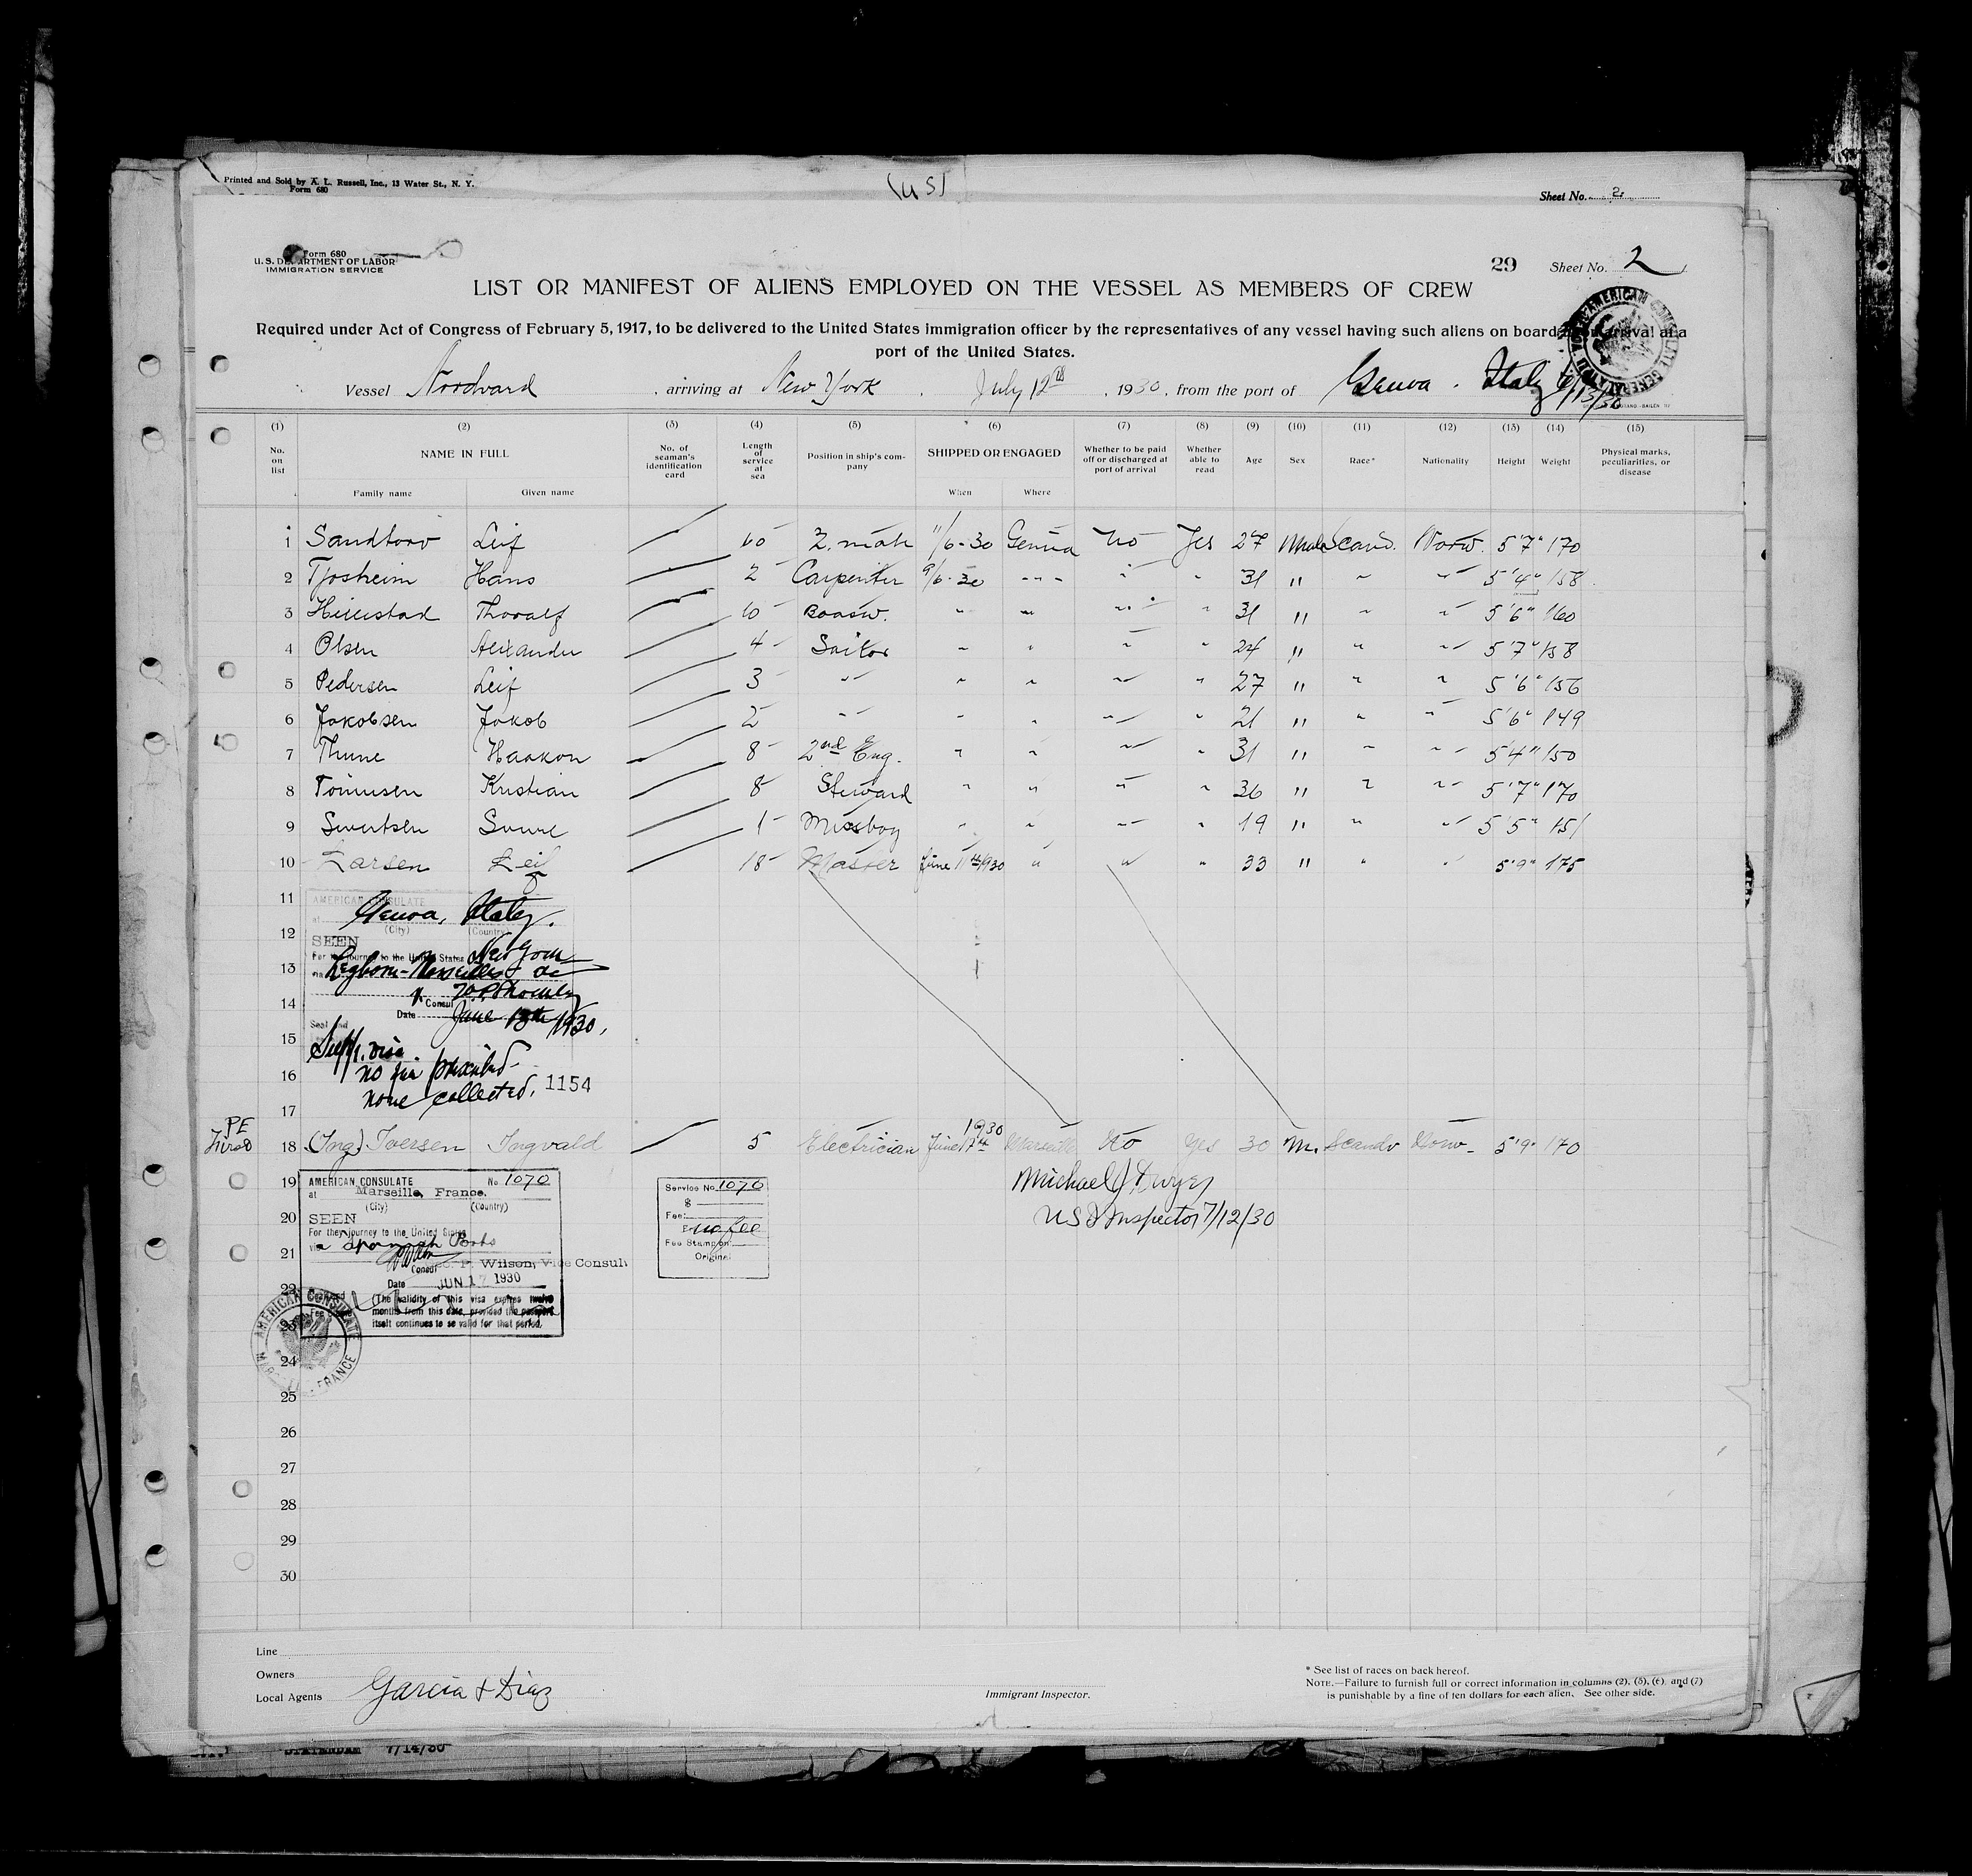 Printed and Sold by A. L. Russell, Inc., 13 Water St., N. Y.
Form 680
(US)
Sheet No. 2
Form 680
U. S. DEPARTMENT OF LABOR
IMMIGRATION SERVICE
29 Sheet No. 2
LIST OR MANIFEST OF ALIENS EMPLOYED ON THE VESSEL AS MEMBERS OF CREW
Required under Act of Congress of February 5, 1917, to be delivered to the United States immigration officer by the representatives of any vessel having such aliens on board upon arrival at a
port of the United States.
Vessel Nordvard, arriving at New York, July 12th, 1930, from the port of Genoa. Italy 6/13/30
(1) (2) (3) (4) (5) (6) (7) (8) (9) (10) (11) (12) (13) (14) (15)
No. on list NAME IN FULL No. of seaman's identification card Length of service at sea Position in ship's company SHIPPED OR ENGAGED Whether to be paid off or discharged at port of arrival Whether able to read Age Sex Race* Nationality Height Weight Physical marks, peculiarities, or disease
Family name Given name When Where
1 Sandtorv Leif 10 2. mate 11/6-30 Genua No Yes 27 Male Scand. Norw. 5'7" 170
2 Tjosheim Hans 2 Carpenter 9/6-30 " " " " 31 " " " 5'4" 158
3 Hillestad Thoralf 10 Boasw. " " " " 31 " " " 5'6" 160
4 Olsen Alexander 4 Sailor " " " " 24 " " " 5'7" 158
5 Pedersen Leif 3 " " " " " 27 " " " 5'6" 156
6 Jakobsen Jakob 2 " " " " " 21 " " " 5'6" 149
7 Thune Haakon 8 2nd Eng. " " " " 31 " " " 5'4" 150
8 Tönnesen Kristian 8 Steward " " " " 36 " " " 5'7" 170
9 Sivertsen Sverre 1 Messboy " " " " 19 " " " 5'5" 151
10 Larsen Leif 18 Master June 11th 1930 " " " 33 " " " 5'9" 175
11
AMERICAN CONSULATE
at Genoa, Italy.
(City) (Country)
12
SEEN
For the journey to the United States New York
13
via Leghorn-Marseilles
14
Consul
Date June 13th 1930.
Seal and
15
Suppl. visa
16
no fee prescribed
none collected. 1154
17
PE
18 (Ing) Iversen Ingvald 5 Electrician June 17th 1930 Marseille No Yes 30 M. Scandv Norw. 5'9" 170
19
AMERICAN CONSULATE No. 1070
at Marseille, France.
(City) (Country)
20
SEEN
For the journey to the United States
via Spanish Ports
21
Wilson, Vice Consul
Consul
Date JUN 17 1930
22
(The validity of this visa expires twelve
months from this date, provided the passport
itself continues to be valid for that period.
23
AMERICAN CONSULATE
MARSEILLE, FRANCE
Service No. 1070
$
Fee:
no fee
Fee Stamp on
Original
Michael J. Dwyer
US Inspector 7/12/30
24
25
26
27
28
29
30
Line
Owners
Local Agents Garcia & Diaz
Immigrant Inspector.
* See list of races on back hereof.
NOTE.—Failure to furnish full or correct information in columns (2), (5), (6), and (7)
is punishable by a fine of ten dollars for each alien. See other side.
7/14/30